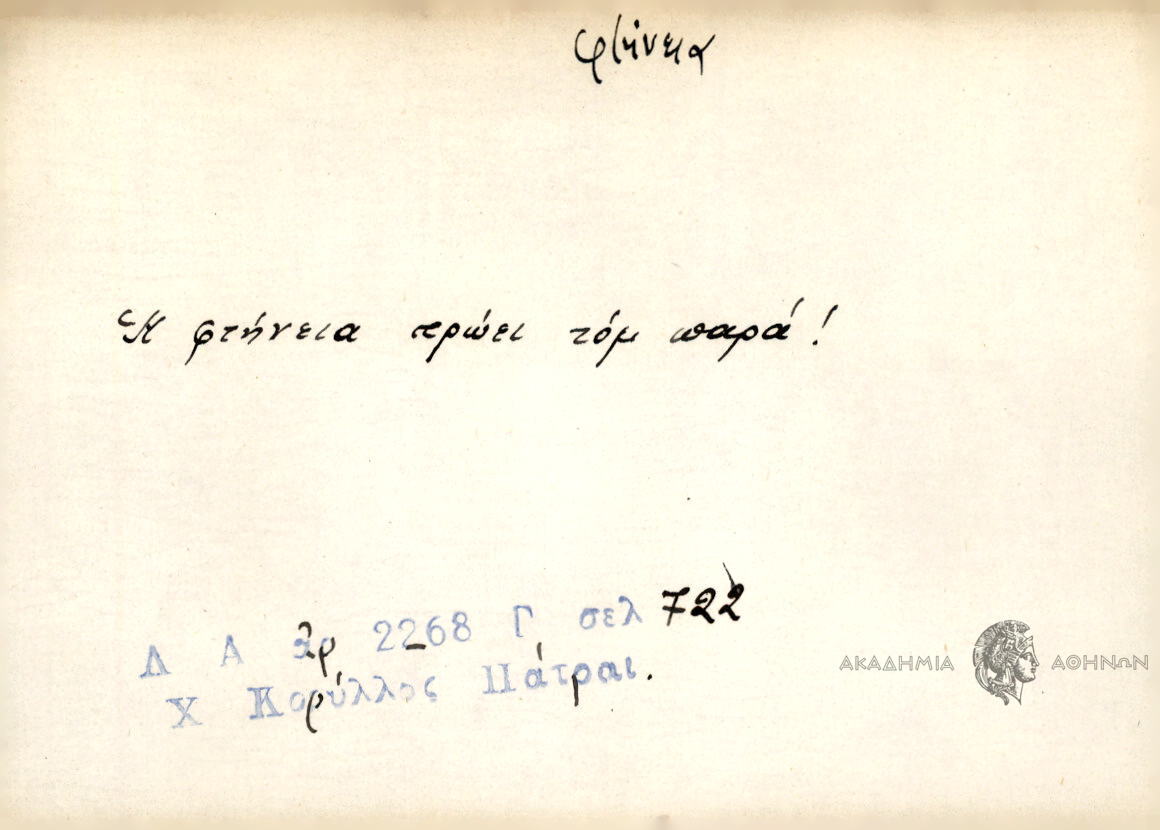 φτήνεια
Ἡ φτήνεια τρώει τόμ παρά!
Λ Α ἀρ 2268 Γ σελ 722
Χ Κορύλλος Πάτραι.
ΑΚΑΔΗΜΙΑ ΑΘΗΝΩΝ